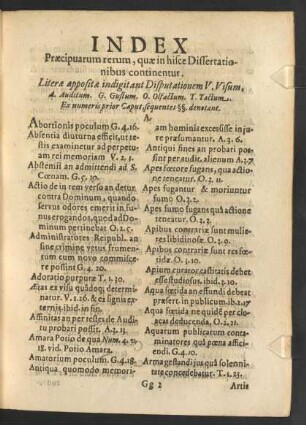 INDEX
Præcipuarum rerum, quæ in hisce Dissertatio-
nibus continentur.
Literæ appositæ indigitant Disputationem V. Visum,
A. Auditum. G. Gustum. O. Olfactum. T. Tactum.
Ex numeris prior Caput, sequentes §§. denotant.
A.
Abortionis poculum G. 4.16.
Absentia diuturna efficit, ut te-
stis examinetur ad perpetu-
am rei memoriam V. 2.5.
Abstemii an admittendi ad S.
Cœnam. G. 5.30.
Actio de in rem verso an detur
contra Dominum, quando
servus odores emerit in fu-
nus erogandos, quæ ad Do-
minum pertinebat O. 2.5.
Administratores Reipubl. an
sine crimine vetus frumen-
tum cum novo commisce-
re possint G. 4. 20.
Adoratio purpuræ T. 1.30.
Ætas ex visu quâdoq; determi-
natur. V. 1.26. & ex signis ex-
ternis. ibid. in fin.
Affinitas an per testes de Audi-
tu probari possit. A. 2.13.
Amara Potio de qua Num. 4. 51.
18. vid. Potio Amara.
Amatorium poculum. G. 4.18.
Antiqua, quomodo memori-
am hominis excessisse in ju-
re præsumantur. A. 3.6.
Antiqui fines an probari pos-
sint per audit. alienum A. 3.7.
Apes fœtore fugans, qua actio-
ne teneatur. O. 2.11.
Apes fugantur & moriuntur
fumo O. 3.2.
Apes fumo fugans quâ actione
teneatur. O. 3.2.
Apibus contrariæ sunt mulie-
res libidinosæ O. 3.9.
Apibus contrariæ sunt res fœ-
tidæ. O. 3.2.
Apium curator, castitatis debet
esse studiosus. ibid. 3.10.
Aqua fœtida an effundi debeat
præsert. in publicum ib. 2.17
Aqua fœtida ne quidē per clo-
acas deducenda. O. 2.21.
Aquarum publicarum conta-
minatores quâ pœnâ affici-
endi. G. 4.10.
Arma gestandi jus quâ solenni-
tate concedebatur. T. 1.23.
Gg 2
Artis